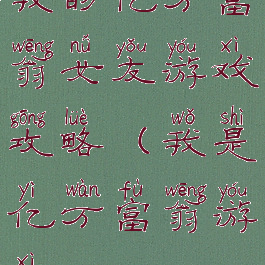 我的亿万富
wēng nǚ yǒu yóu xì
翁女友游戏
gōng luè wǒ shì
攻略（我是
yì wàn fù wēng yóu
亿万富翁游
xì